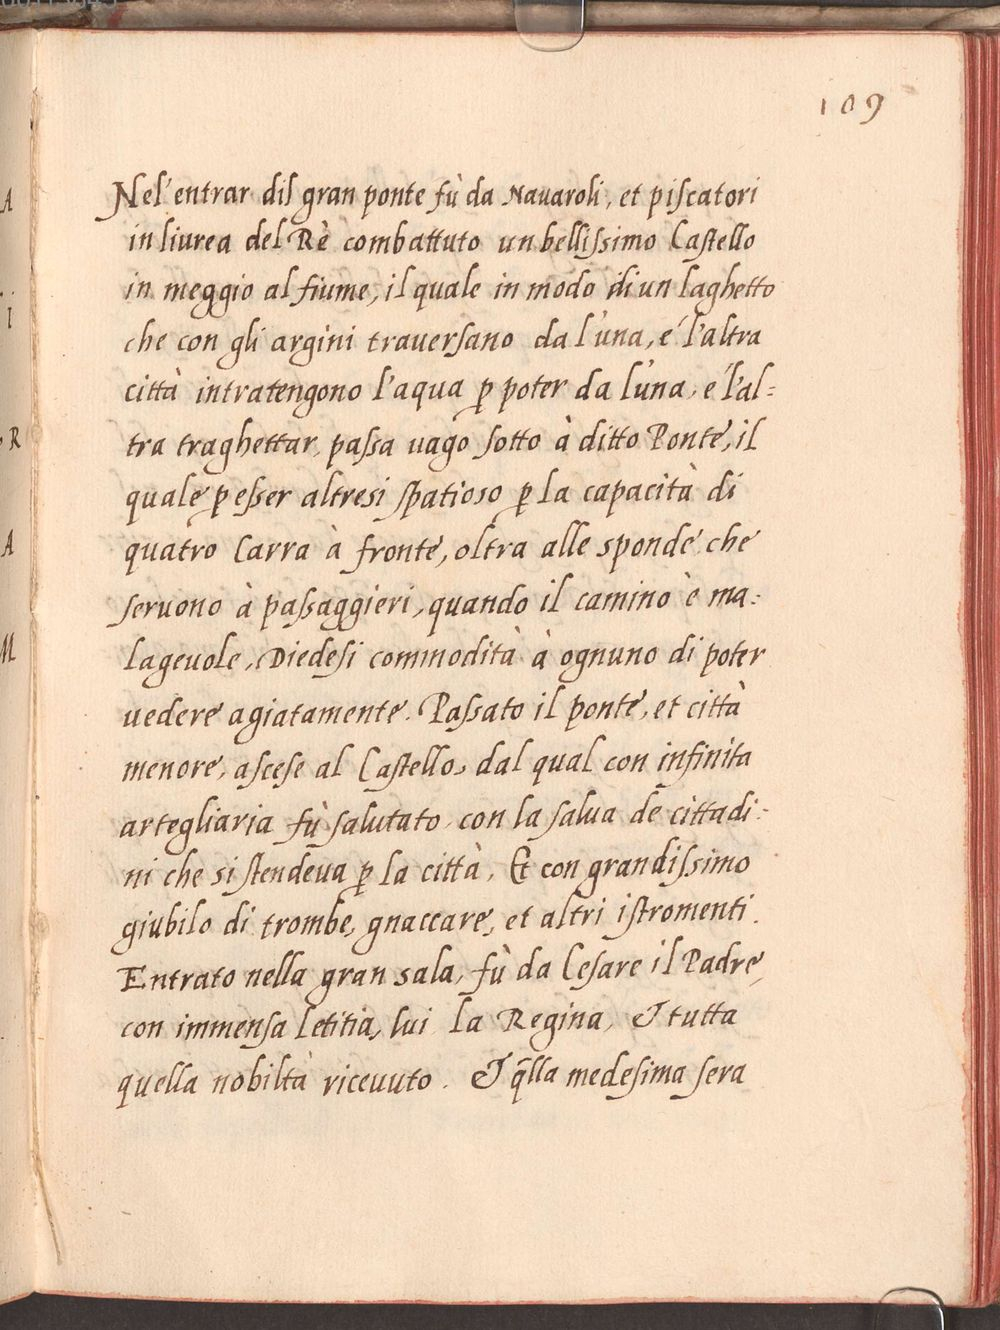 109
Nel'entrar dil gran ponte fù da Nauaroli, et piſcatori
in liurea del Rè combattuto un belliſsimo Caſtello
in meggio al fiume, il quale in modo di un laghetto
che con gli argini trauerſano da l'una, e l'altra
città intratengono l'aqua ꝑ poter da l'una, e l'al=
tra traghettar, paſsa uago ſotto à ditto Ponte, il
quale ꝑ eſser altresi ſpatioso ꝑ la capacità di
quatro Carra à fronte, oltra alle sponde che
ſeruono à paſsaggieri, quando il camino è ma=
lageuole, Diedeſi commodità à ognuno di poter
uedere agiatamente. Paſsato il ponte, et città
menore, aſceſe al Caſtello, dal qual con infinita
artegliaria fù ſalutato con la ſalua de cittadi=
ni che si ſtendeua ꝑ la città, Et con grandiſsimo
giubilo di trombe, gnaccare, et altri iſtromenti.
Entrato nella gran sala, fù da Ceſare il Padre,
con immenſa letitia, lui la Regina, Et tutta
quella nobiltà riceuuto. Et q̃lla medeſima ſera
A
I
R
A
M